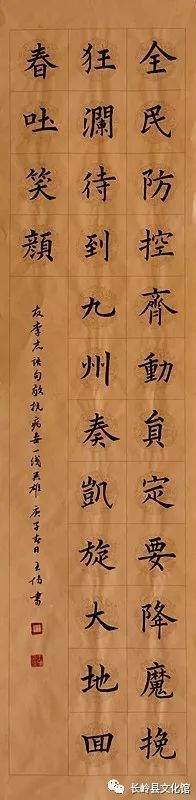 全民防控齊動員定要降魔挽
狂瀾待到九州奏凱旋大地回
春吐笑顏
友李志語句敬抗病毒一线英雄 庚子春日 王 書
长岭县文化馆